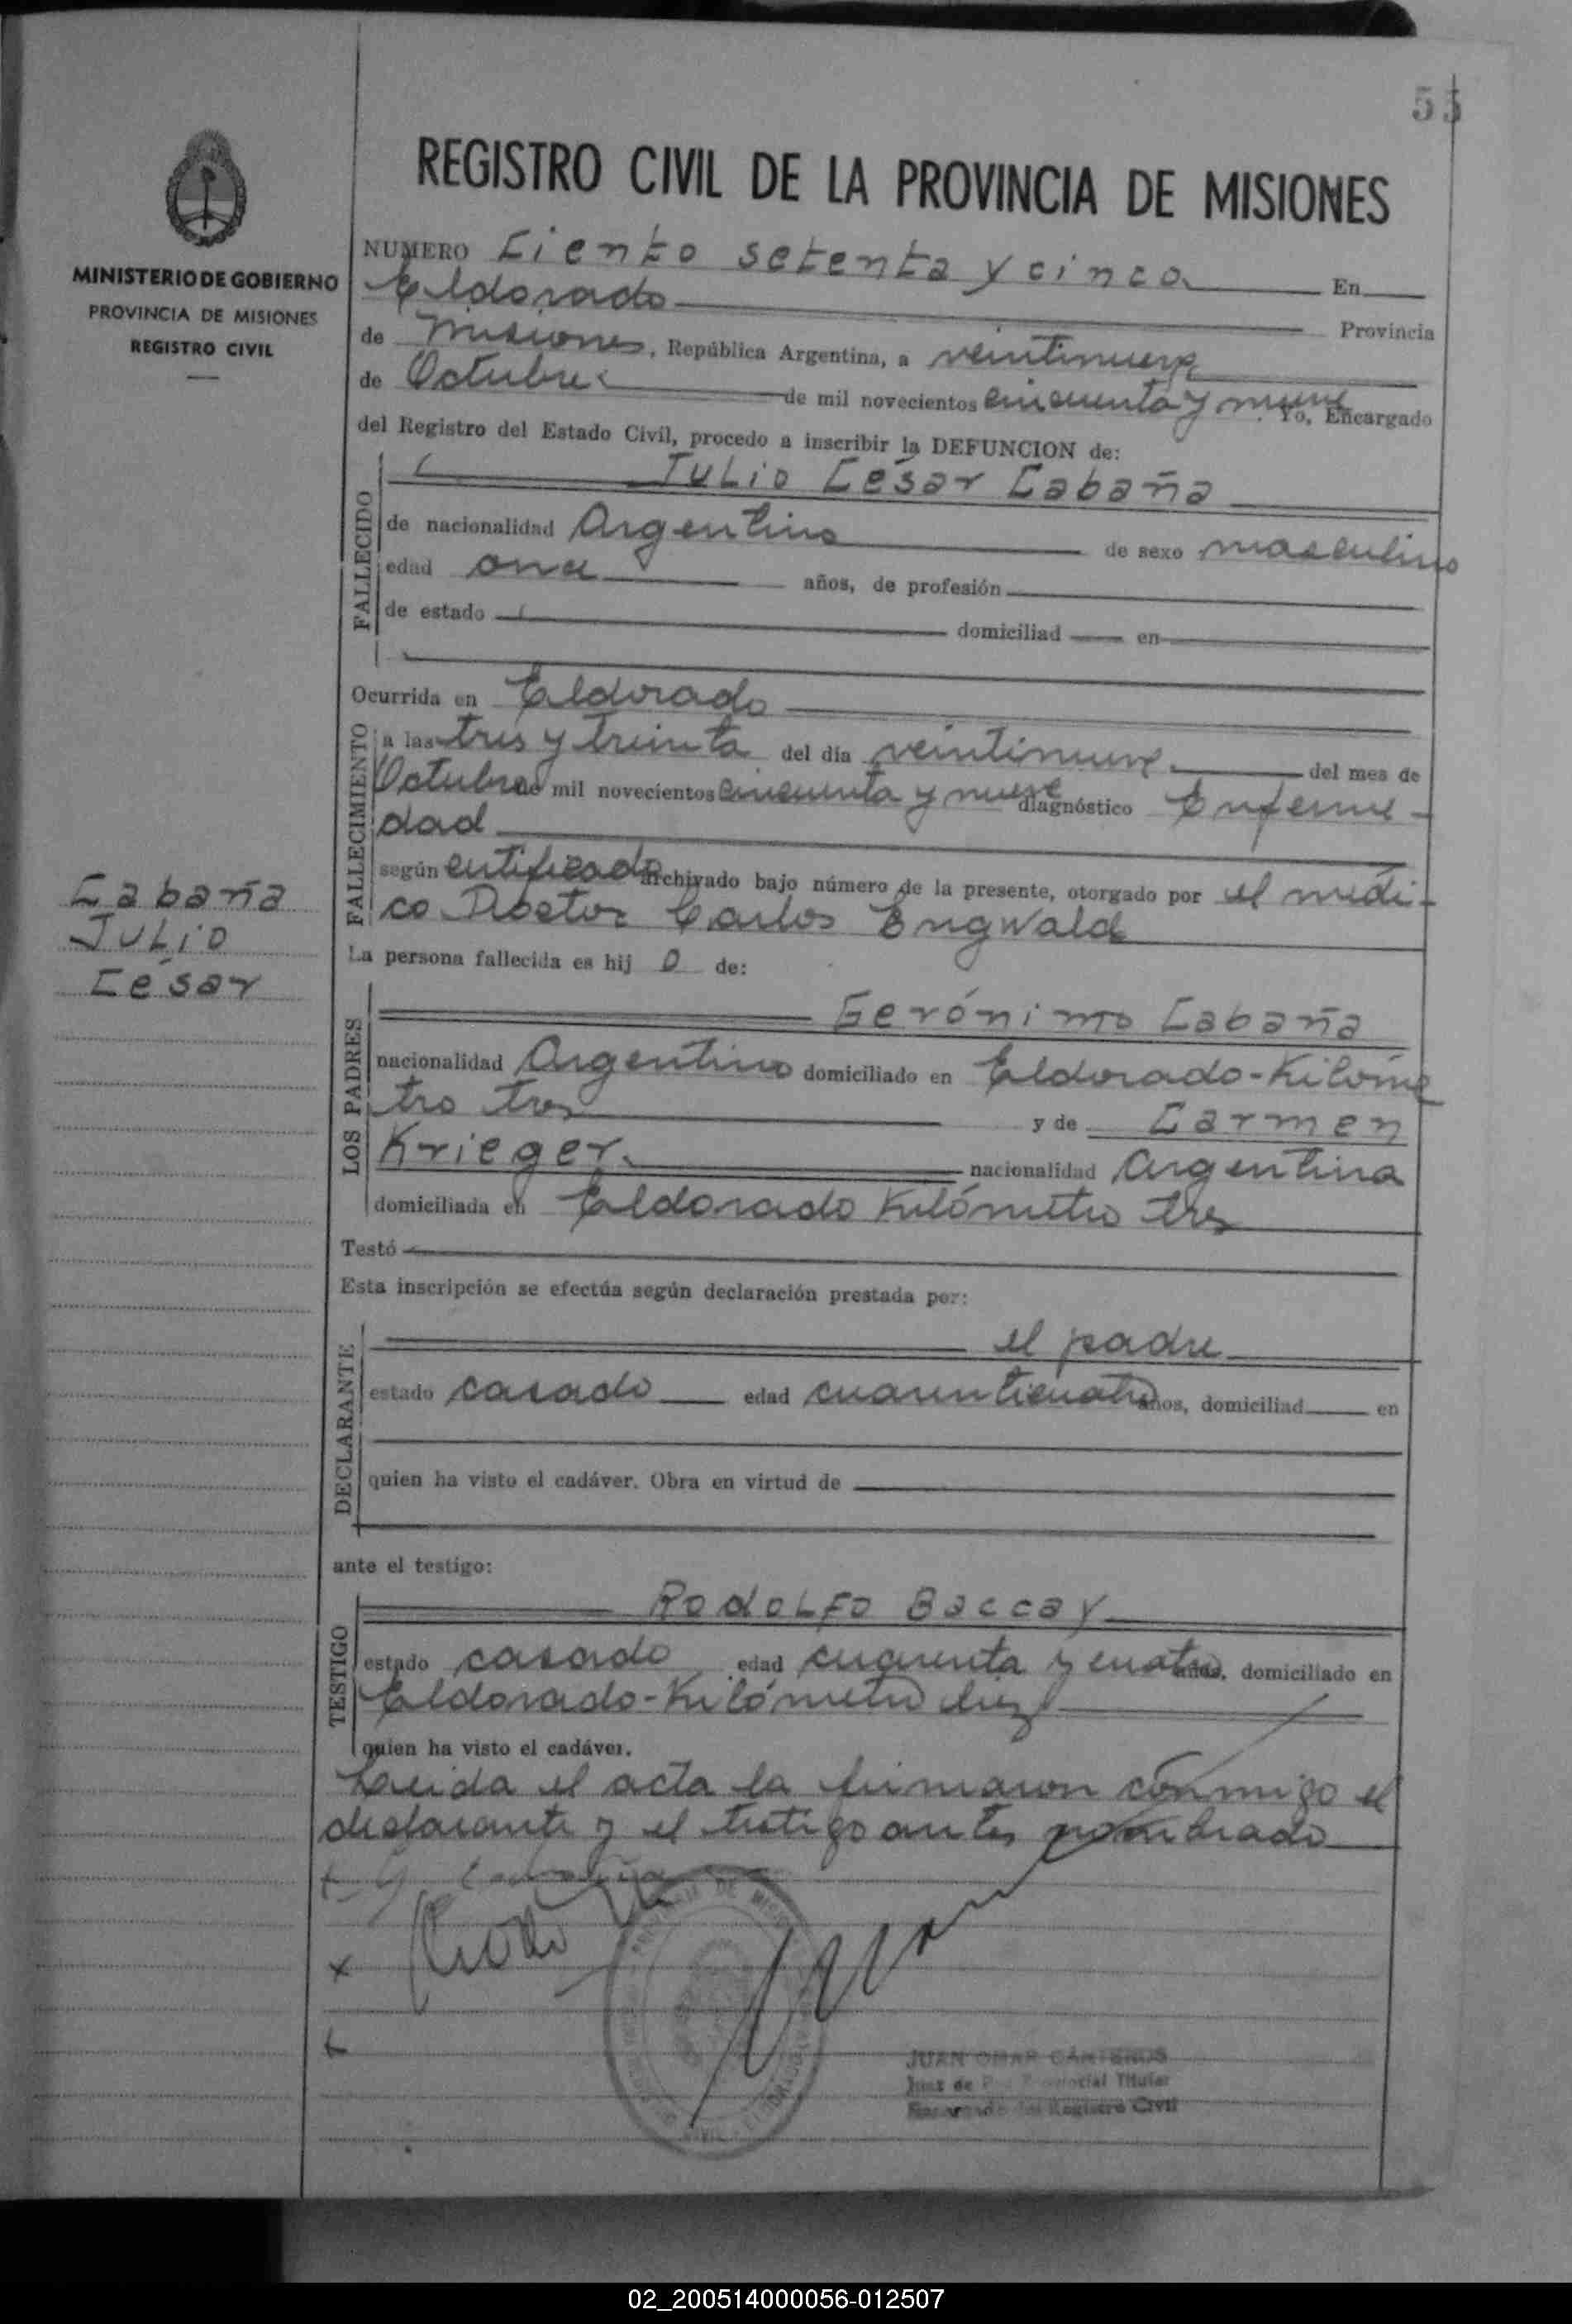 55
REGISTRO CIVIL DE LA PROVINCIA DE MISIONES
MINISTERIO DE GOBIERNO
PROVINCIA DE MISIONES
REGISTRO CIVIL
NUMERO Ciento setenta y cinco En
Eldorado Provincia
de Misiones, República Argentina, a veintinueve
de Octubre de mil novecientos cincuenta y nueve. Yo, Encargado
del Registro del Estado Civil, procedo a inscribir la DEFUNCION de:
FALLECIDO
JULIO César Cabaña
de nacionalidad Argentino de sexo masculino
edad once años, de profesión
de estado domiciliad en
Ocurrida en Eldorado
FALLECIMIENTO
a las tres y treinta del día veintinueve del mes de
Octubre de mil novecientos cincuenta y nueve diagnóstico Enferme-
dad
según certificado archivado bajo número de la presente, otorgado por el médi-
co Doctor Carlos Engwald
Cabaña
JULIO
César
La persona fallecida es hij o de:
LOS PADRES
Gerónimo Cabaña
nacionalidad Argentino domiciliado en Eldorado-Kilóme
tro tres y de Carmen
Krieger. nacionalidad Argentina
domiciliada en Eldorado Kilómetro tres
Testó
Esta inscripción se efectúa según declaración prestada por:
DECLARANTE
el padre
estado casado edad cuarenticuatro años, domiciliad en
quien ha visto el cadáver. Obra en virtud de
ante el testigo:
TESTIGO
RODOLFO Baccay
estado casado edad cuarenta y cuatro años, domiciliado en
Eldorado-Kilómetro diez
quien ha visto el cadáver.
Leida el acta la firmaron conmigo el
declarante y el testigo antes nombrado
JUAN OMAR CANTEROS
Juez de Paz Provincial Titular
Encargado del Registro Civil
02_200514000056-012507